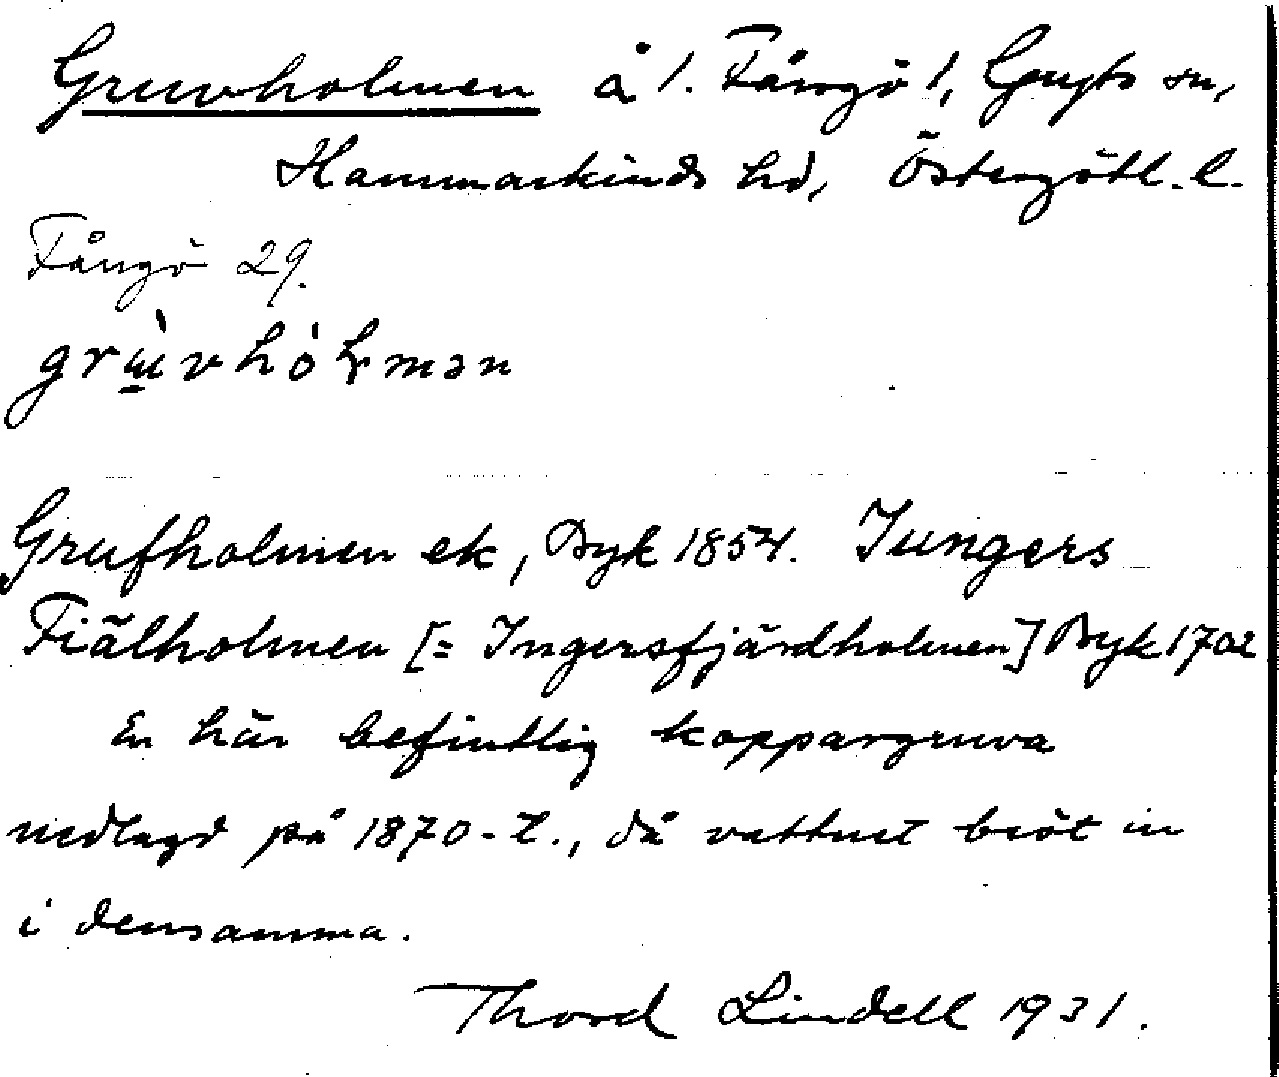 Gruvholmen å 1. Fångö 1, Gryts sn,
Hammarkinds hd, Östergötl. l.
Fångö 29.
grʉ̀vhólmən
Grufholmen ek, Byk 1854. Jungers
Fiälholmen [= Ingersfjärdholmen] Byk 1702
En här befintlig koppargruva
nedlagd på 1870-t., då vattnet bröt in
i densamma.
Thord Lindell 1931.